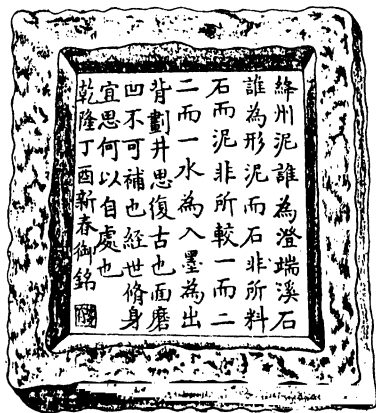 絳州泥誰為澄端溪石
誰為形泥而石非所料
石而泥非所較一而二
二而一水為入墨為出
背劃井思復古也面磨
凹不可補也經世脩身
宜思何以自處也
乾隆丁酉新春御銘